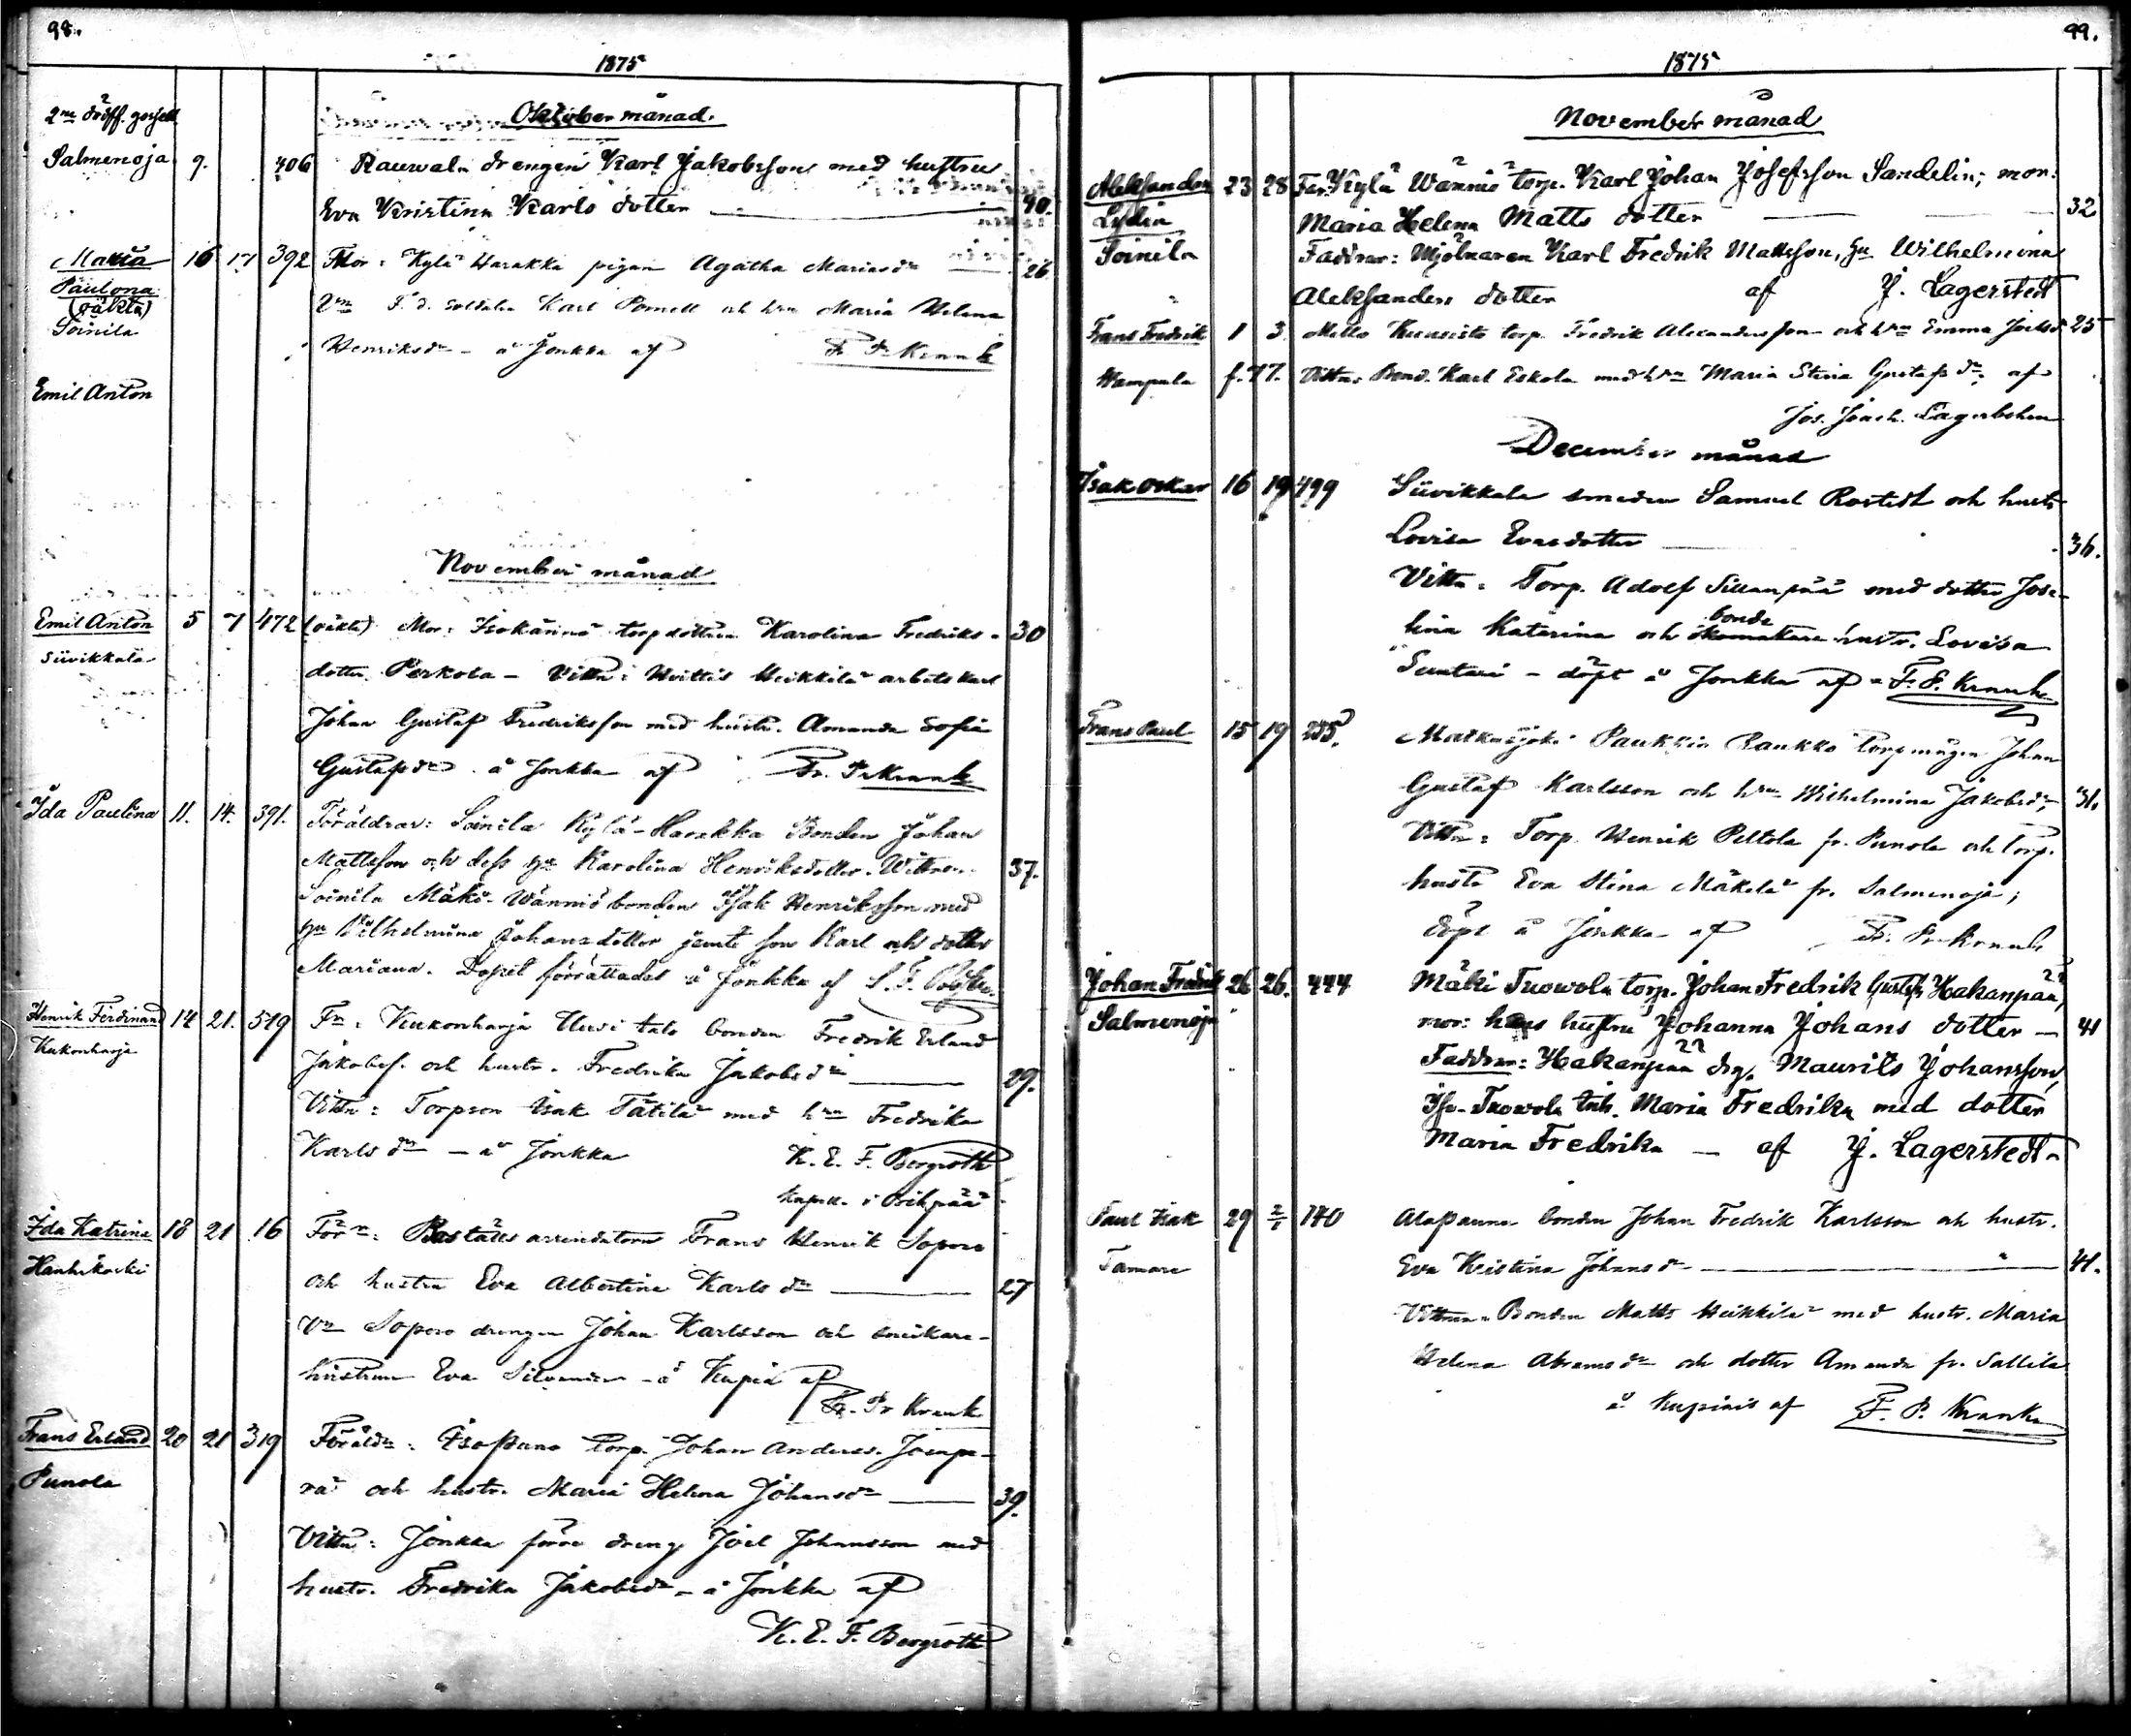 98.
1875
Oktober månad.
2ne dödf. gossar
Salmenoja 9. 406 Rauwala drengen Karl Jakobsson med hustru
Eva Kristina Karls dotter 40.
Maria 16 17 392 Mor: Kylä Harakka pigan Agatha Mariasdr 26
Paulina
(oäkta) Vne F. d. soldaten Karl och hru Maria Helena
Soinila
Henriksdr - å Jonkka af F. P. Krank
Emil Anton
November månad
Emil Anton 5 7 472 (oäkta) Mor: Isokännö torpdottren Karolina Fredriks- 30
Siivikkala
dotter Perkola - Vittn: Huittis Heikkilä arbets karl
Johan Gustaf Fredriksson med hustr. Amanda Sofia
Gustafsdr å Jonkka af Fr. P. Krank
Ida Paulina 11. 14. 391. Föräldrar: Soinila Kylä-Harakka Bonden Johan
Mattsson och dess hu Karolina Henriksdotter. Wittnen: 37.
Soinila Mäki-Wännis bonden Isak Henriksson med
hu Wilhelmina Johansdotter jemte son Karl och dotter
Mariana. Dopet förrättades å Jonkka af
Henrik Ferdinand 14 21. 519 Fr: Kukonharja Uusi talo bonden Fredrik Erland
Kukonharja
Jakobss. och hustr. Fredrika Jakobsdr 29.
Vittn: Torpson Isak Tätilä med hru Fredrika
Karlsdr - å Jonkka K. E. F. Bergroth
kapell. i Orihpää
Ida Katrina 18 21 16 Förr: Boställs arrendatorn Frans Henrik Soporo
Hanhikoski
och hustru Eva Albertina Karlsdr 27
Vn Soporo drengen Johan Karlsson och snickare-
hustrun Eva Silvander - å Kupia af
Fr. Pr Krank
Frans Erland 20 21 319 Föräldr: Isopuno torp. Johan Anderss. Joenpe-
Punola
rä och hustr. Maria Helena Johansdr 39.
Vittn: Jonkka förre dreng Joel Johansson med
hustr. Fredrika Jakobsdr - å Jonkka af
K. E. F. Bergroth
99.
1875
November månad
Aleksandra 23 28 Far: Kylä Wännis torp. Karl Johan Josefsson Sandelin; mor:
Lydia Maria Helena Matts dotter 32
Soinila Faddrar: Mjölnaren Karl Fredrik Mattsson, hu Wilhelmina
Aleksanders dotter af J. Lagerstedt
Frans Fredrik 1 3. Mello Kuusisto torp. Fredrik Alexandersson och hru Emma Joelsdr 25
Hampula f. 77. Vittn: Bond. Karl Eskola med hru Maria Stina Gustafsdr; af
Jos. Joach. Lagerbohm
December månad
Isak Oskar 16 19 499 Siivikkala smeden Samuel Rostedt och hustr.
Lovisa Evasdotter 36.
Vittn: Torp. Adolf Sillanpää med dotter Jose-
fina Katarina och bonde hustr. Lovisa
Suntari - döpt å Jonkka af F. P. Krank
Frans Paul 15 19 235. Matkusjoki Paukkio Raukko torpmågen Johan
Gustaf Karlsson och hru Wilhelmina Jakobsdr 31.
Vittn: Torp. Henrik Peltola fr. Punola och torp.
hustr Eva Stina Mäkelä fr. Salmenoja;
döpt å Jonkka af Fr. P. Krank
Johan Fredrik 26 26. 444 Mäki Tuowola torp. Johan Fredrik Gustafs. Hakanpää,
Salmenoja mor: hans hustru Johanna Johans dotter - 41
Faddrar: Hakanpää drg. Maurits Johansson,
Iso-Tuowola inh. Maria Fredrika med dotter
Maria Fredrika - af J. Lagerstedt
Paul Isak 29 2/1 140 Alapanno bonden Johan Fredrik Karlsson och hustr.
Tamare Eva Kristina Johansdr 41.
Vittnen: Bonden Matts Heikkilä med hustr. Maria
Helena Abramsdr och dotter Amanda fr. Sallila
å Kupiais af F. P. Krank